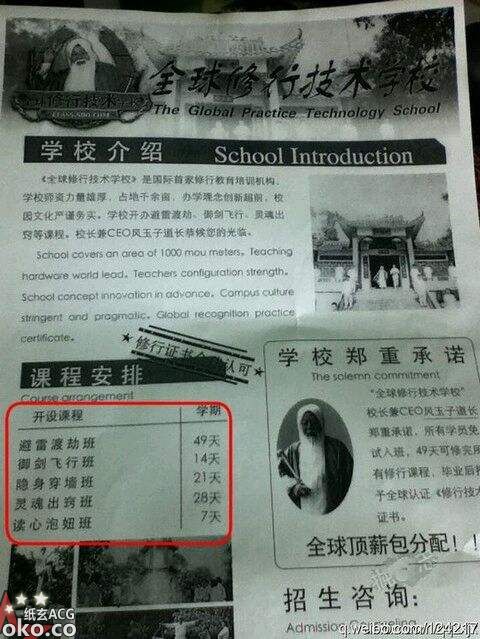 全球修行技术学校
The Global Practice Technology School
修行技术学校
学校介绍 School Introduction
《全球修行技术学校》是国际首家修行教育培训机构,
学校师资力量雄厚,占地千余亩,办学理念创新超前,校
园文化严谨务实。学校开办避雷渡劫、御剑飞行、灵魂出
窍等课程。校长兼CEO风玉子道长恭候您的光临。
School covers an area of 1000 mou meters. Teaching
hardware world lead. Teachers configuration strength.
School concept innovation in advance. Campus culture
stringent and pragmatic. Global recognition practice
certificate.
修行证书 认可
课程安排
Course arrangement
开设课程 学期
避雷渡劫班 49天
御剑飞行班 14天
隐身穿墙班 21天
灵魂出窍班 28天
读心泡妞班 7天
学校郑重承诺
The solemn commitment
"全球修行技术学校"
校长兼CEO风玉子道长
郑重承诺,所有学员免
试入班,49天可修完所
有修行课程,毕业后授
予全球认证《修行技术
证书。
全球顶薪包分配!!
招生咨询:
Admission
纸玄ACG
oko.co
weibo.com/1242417